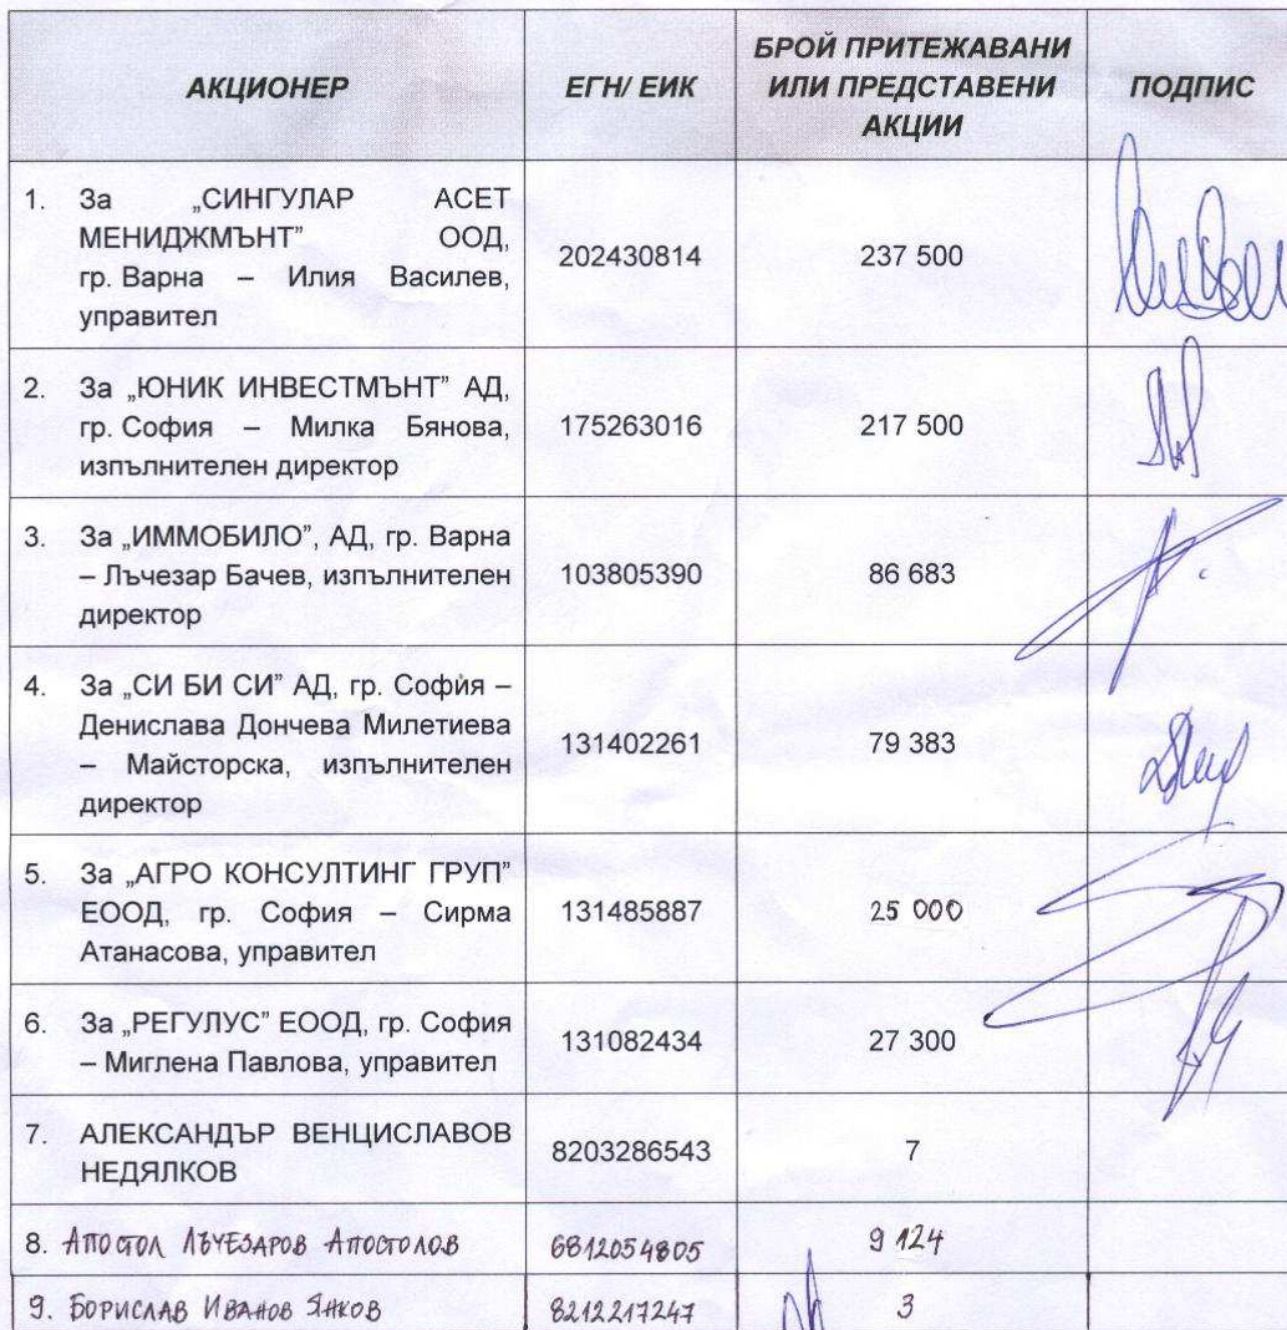 АКЦИОНЕР
ЕГН/ ЕИК
БРОЙ ПРИТЕЖАВАНИ
ИЛИ ПРЕДСТАВЕНИ
АКЦИИ
ПОДПИС
1. За „СИНГУЛАР АСЕТ
МЕНИДЖМЪНТ” ООД,
гр. Варна – Илия Василев,
управител
202430814
237 500
2. За „ЮНИК ИНВЕСТМЪНТ” АД,
гр. София – Милка Бянова,
изпълнителен директор
175263016
217 500
3. За „ИММОБИЛО”, АД, гр. Варна
– Лъчезар Бачев, изпълнителен
директор
103805390
86 683
4. За „СИ БИ СИ” АД, гр. София –
Денислава Дончева Милетиева
– Майсторска, изпълнителен
директор
131402261
79 383
5. За „АГРО КОНСУЛТИНГ ГРУП”
ЕООД, гр. София – Сирма
Атанасова, управител
131485887
25 000
6. За „РЕГУЛУС” ЕООД, гр. София
– Миглена Павлова, управител
131082434
27 300
7. АЛЕКСАНДЪР ВЕНЦИСЛАВОВ
НЕДЯЛКОВ
8203286543
7
8. АПОСТОЛ ЛЪЧЕЗАРОВ АПОСТОЛОВ
6812054805
9 124
9. БОРИСЛАВ ИВАНОВ ЯНКОВ
8212217247
3